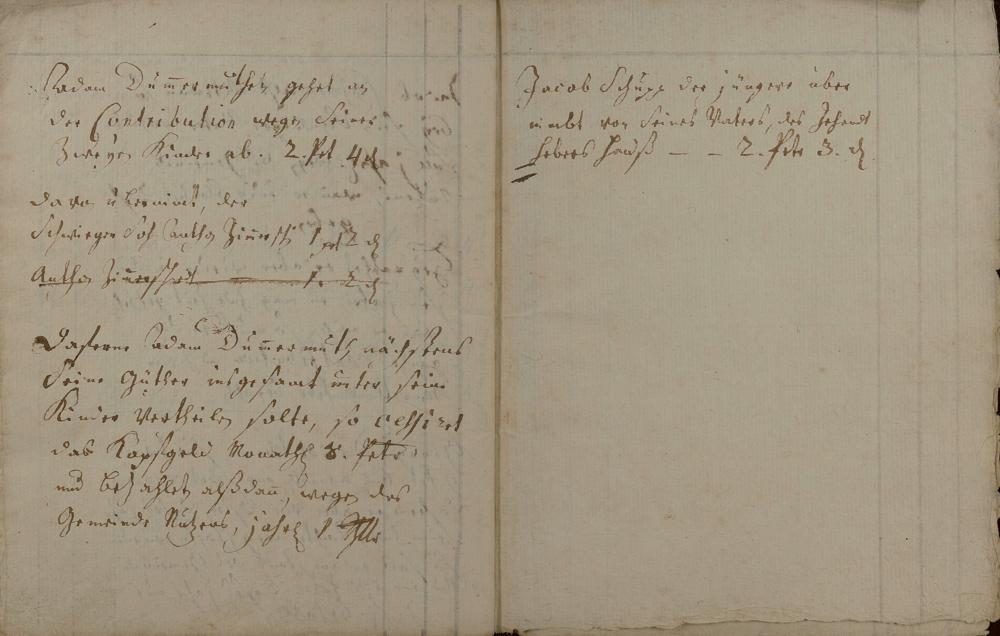 Adam Dummermuthen gehet an
der Contribution wegen seiner
Zweyen Kinder ab. 2. Pet. 4 d
davon übernimt, der
Schwieger Sohn Anthon 1 pet 2 d
Anthon 1. 2 d
Daferne Adam Dummermuth, nächstens
seine Güther insgesamt unter seine
Kinder vertheilen solte, so cessiret
das Kopfgeld Monathl 8. Petr
und bezahlet alßdann, wegen des
Gemeinde Nutzens, jährl 1 Thlr
Jacob Schupp der jüngere über
nimbt von seines Vaters, des Zehend
hebers Hauß — — 2. Petr 3. d